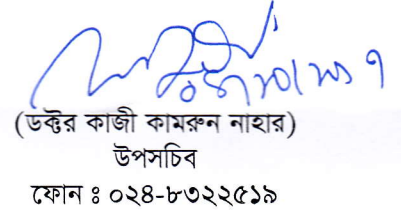 (ডক্টর কাজী কামরুন নাহার)
উপসচিব
ফোন ঃ ০২৪-৮৩২২৫১৯